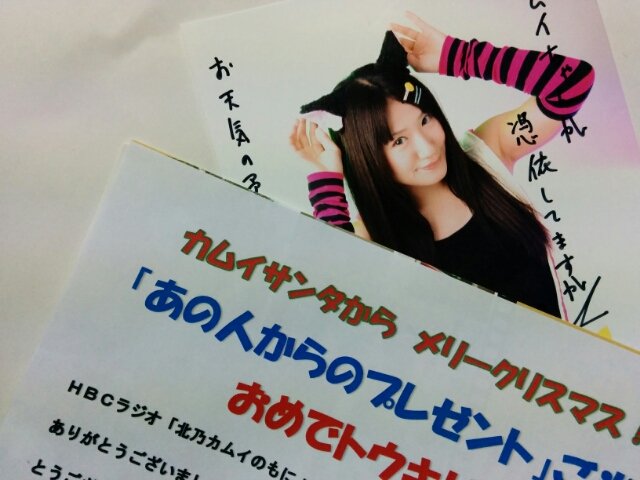 お天気の
ムイナが
憑依してますが
カムイサンタから メリークリスマス!
「あの人からのプレゼント」ご
おめでトウ
HBCラジオ「北乃カムイのもに
ありがとうございまし
とうござ